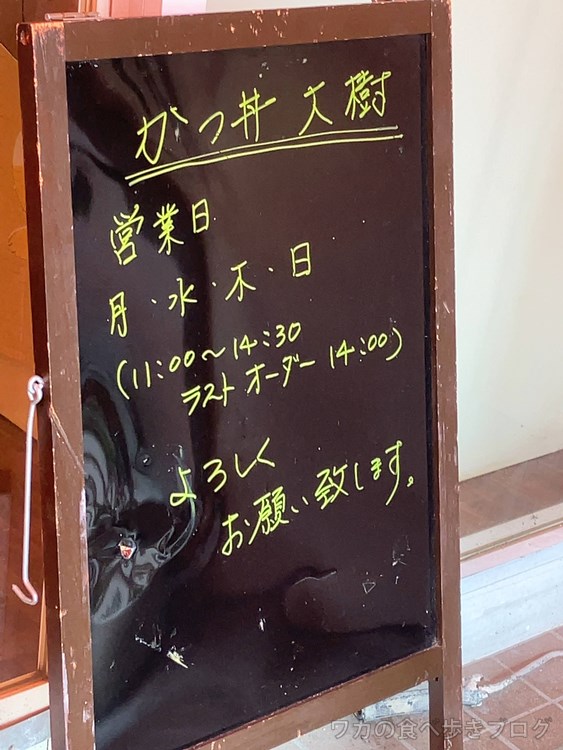 かつ丼 大樹
営業日
月・水・木・日
(11:00〜14:30
ラストオーダー 14:00)
よろしく
お願い致します。
ワカの食べ歩きブログ